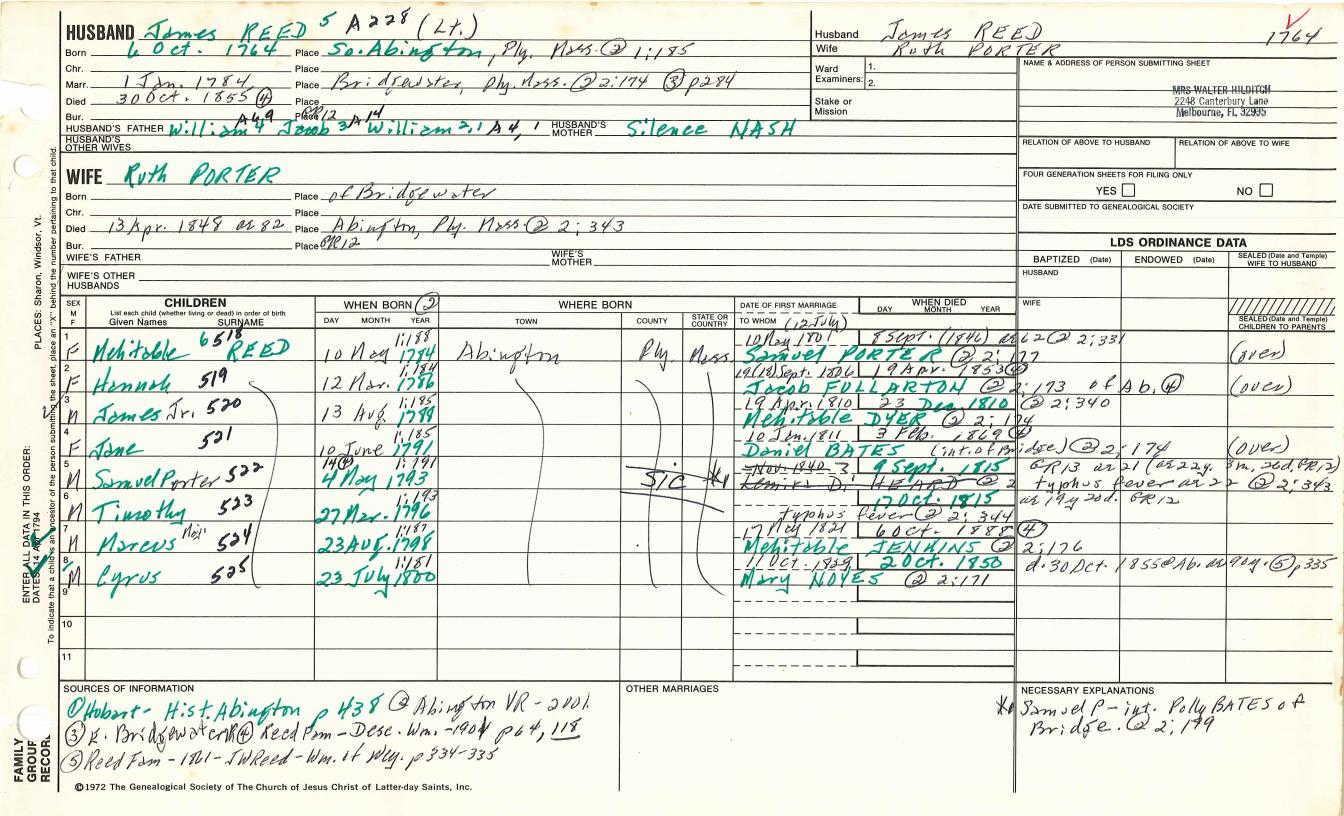 HUSBAND James REED 5 A228 (Lt.)
Born 6 Oct. 1764 Place So. Abington, Ply. Mass. ② 1:185
Chr. Place
Marr. 1 Jan. 1784 Place Bridgewater, Ply. Mass. ② 2:174 ③ p284
Died 30 Oct. 1855 ④ Place
Bur. Place
A49 A14
HUSBAND'S FATHER William 4 Jacob 3 William 2,1 A4,1 HUSBAND'S MOTHER Silence NASH
HUSBAND'S OTHER WIVES
Husband James REED 1764
Wife Ruth PORTER
Ward Examiners: 1.
2.
Stake or Mission
NAME & ADDRESS OF PERSON SUBMITTING SHEET
MRS WALTER HILDITCH
2248 Canterbury Lane
Melbourne, FL 32935
RELATION OF ABOVE TO HUSBAND RELATION OF ABOVE TO WIFE
FOUR GENERATION SHEETS FOR FILING ONLY
YES NO
DATE SUBMITTED TO GENEALOGICAL SOCIETY
WIFE Ruth PORTER
Born Place of Bridgewater
Chr. Place
Died 13 Apr. 1848 ae 82 Place Abington, Ply. Mass. ② 2:343
Bur. Place GR12
WIFE'S FATHER WIFE'S MOTHER
WIFE'S OTHER HUSBANDS
LDS ORDINANCE DATA
BAPTIZED (Date) ENDOWED (Date) SEALED (Date and Temple) WIFE TO HUSBAND
HUSBAND
WIFE
SEALED (Date and Temple) CHILDREN TO PARENTS
SEX M F
CHILDREN
List each child (whether living or dead) in order of birth
Given Names SURNAME
WHEN BORN ②
DAY MONTH YEAR
WHERE BORN
TOWN COUNTY STATE OR COUNTRY
DATE OF FIRST MARRIAGE
TO WHOM
WHEN DIED
DAY MONTH YEAR
1 6518 1:188 (12 July) 10 May 1801 8 Sept. (1846) ae 62 ② 2:331
F Mehitable REED 10 May 1784 Abington Ply. Mass. Samuel PORTER ② 2:177 (over)
2 1:184 19 (18) Sept. 1806 19 Apr. 1853 ④
F Hannah 519 12 Mar. 1786 Jacob FULLARTON ② 2:173 of Ab. ④ (over)
3 1:185 19 Apr. 1810 23 Dec 1810 ② 2:340
M James Jr. 520 13 Aug. 1788 Mehitable DYER ② 2:174
4 1:185 10 Jan. 1811 3 Feb. 1869 ④
F Jane 521 10 June 1791 Daniel BATES (int. of Bridge) ② 2:174 (over)
5 14 ④ 1:191 Nov. 1840 3 9 Sept. 1815 GR13 ae 21 (ae 22y. 3m, 26d, GR12)
M Samuel Porter 522 4 May 1793 sic Lemira D. HEARD ② 2 typhus fever ae 22 ② 2:343
6 1:193 17 Oct. 1815 ae 19y 20d. GR12
M Timothy 523 27 Mar. 1796 typhus fever ② 2:344
7 1:187 17 May 1821 6 Oct. 1888 ④
M Marcus Maj. 524 23 Aug. 1798 Mehitable JENKINS ② 2:176
8 1:181 11 Oct. 1829 2 Oct. 1850 d. 30 Oct. 1855 @ Ab. ae 90y. ⑤ p335
M Cyrus 525 23 July 1800 Mary NOYES ② 2:171
9
10
11
SOURCES OF INFORMATION
① Hobart - Hist. Abington p 438 ② Abington VR - 2001.
③ E. Bridgewater VR ④ Reed Fam - Desc. Wm. - 1901 p64, 118
⑤ Reed Fam - 1861 - JW Reed - Wm. of Wey. p334-335
OTHER MARRIAGES
NECESSARY EXPLANATIONS
Samuel P - int. Polly BATES of
Bridge. ② 2:179
©1972 The Genealogical Society of The Church of Jesus Christ of Latter-day Saints, Inc.
FAMILY GROUP RECORD
ENTER ALL DATA IN THIS ORDER:
DATES: 14 Apr 1794
PLACES: Sharon, Windsor, Vt.
To indicate that a child is an ancestor of the person submitting the sheet, place an "X" behind the number pertaining to that child.